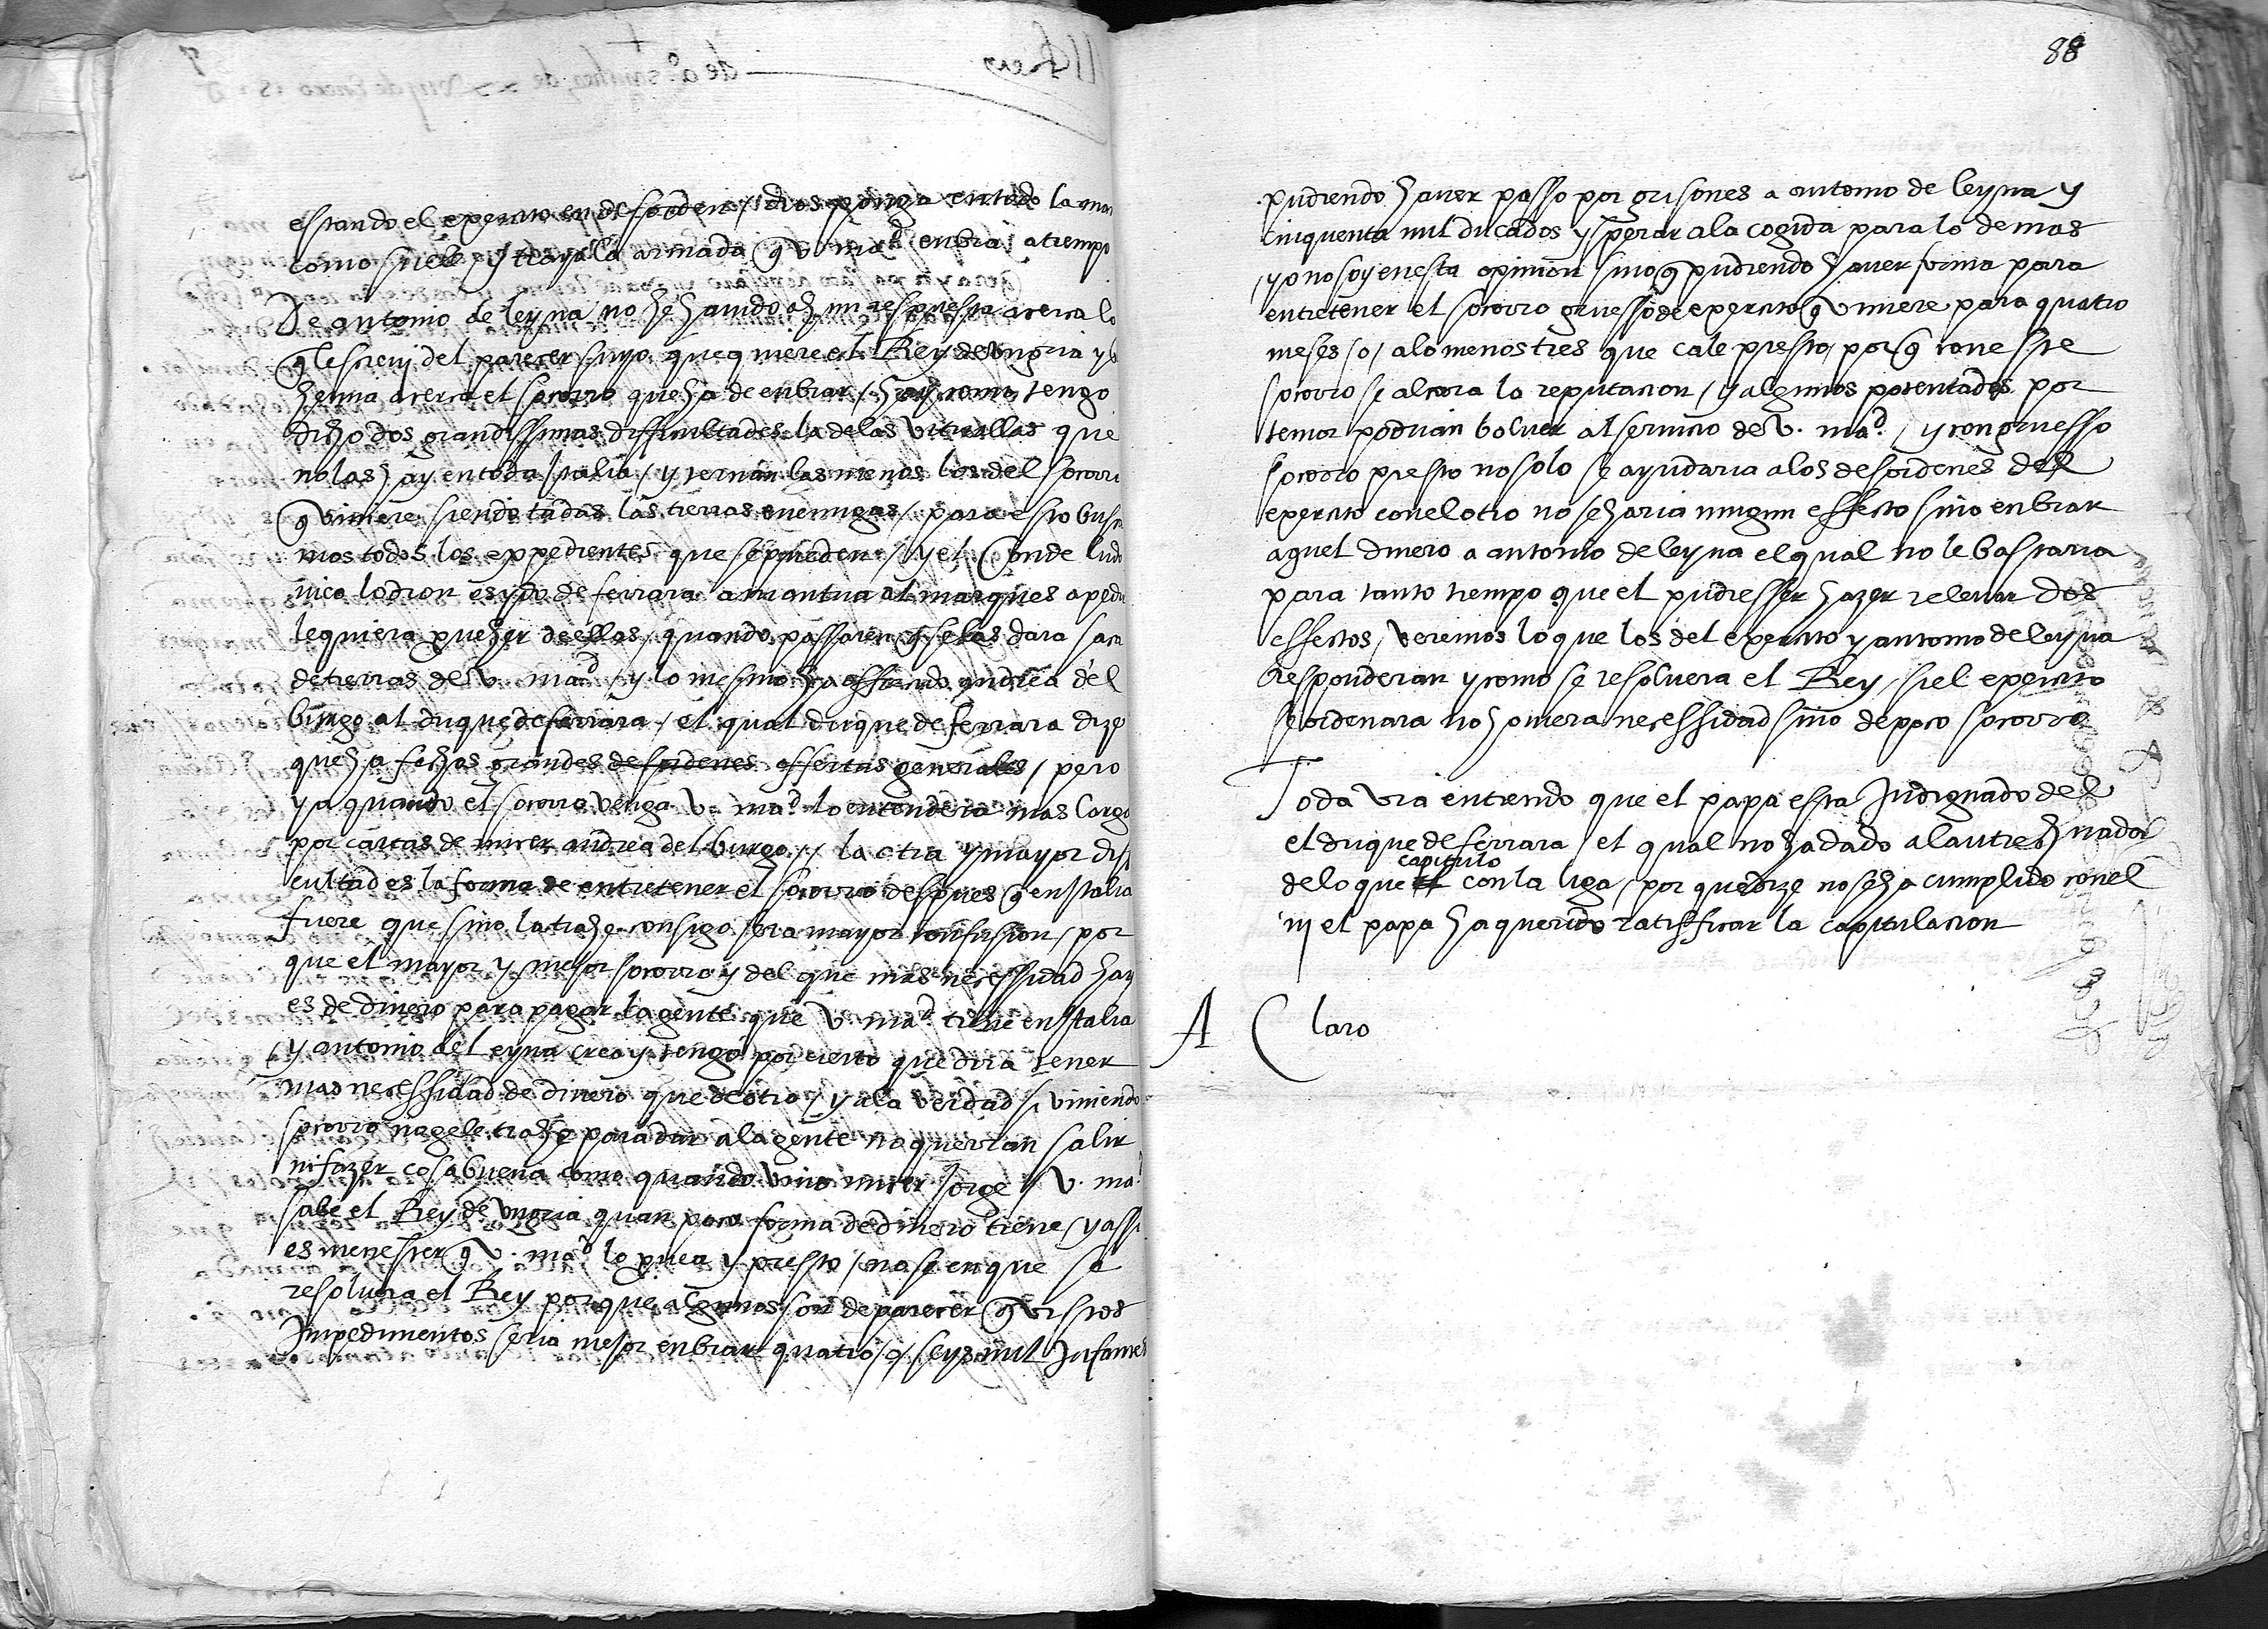 estando el exercito en desorden / dios ponga en todo la mano
como suele / y traya la armada q̃ v. mad enbia / a tiempo
De antonio de leyna / no he havido ahun respuesta acerca lo
q̃ le screvi del parecer suyo que quiere el Rey de ungria y bo
hemia acerca el socorro que ha de enbiar / hay como tengo
dicho dos grandissimas difficultades la de las vituallas que
no las ay en toda italia / y ternan las menos los del socorro
q̃ viniere siendo todas las tierras enemigas / para esto busca
mos todos los expedientes que se pueden / y el Conde ludo
vico lodron es ydo de ferrara a mantua al marques a pedir
le quiera proveher de ellas / quando passaren q̃ se las dara saca
de tierras de v. mad / y lo mesmo ha offrecido andrea del
burgo al duque de ferrara / el qual duque de ferrara dize
que ha fechas grandes desordenes offertas generales / pero
ya quando el socorro venga v. mad. lo entenderia mas largo
por cartas de micer andrea del burgo // la otra y mayor diffi
cultad es la forma de entretener el socorro despues q̃ en Italia
fuere que sino la trahe consigo sera mayor confusion / por
que el mayor y mejor socorro y del que mas necessidad hay
es de dinero para pagar la gente que v. mad tiene en Italia
/ y antonio de Leyna creo y tengo por cierto que dira tener
mas necessidad de dinero que de otro / y a la verdad si viniendo
socorro no se le trahe para dar a la gente no querran salir
ni fazer cosa buena como quando vino micer Jorge // v. mad
sabe el Rey de ungria quan poca forma de dinero tiene / y assi
es menester q̃ v. mad lo provea y presto / no se en que se
resolvera el Rey porque algunos son de parecer q̃ vistos
Impedimentos seria mejor enbiar quatro / o / seys mil Infantes
88
pudiendo haver passo por grisones a antonio de leyna y
cinquenta mil ducados y sperar a la cogida para lo demas
/ yo no soy en esta opinion sino q̃ pudiendo haver forma para
entretener el socorro gruesso de exercito q̃ viniere para quatro
meses / o / a lo menos tres que cale presto / por q̃ con este
socorro se alçara la reputacion / y algunos potentados por
temor podrian bolver al servicio de v. mad. / y con gruesso
socorro presto no solo se ayudaria a los desordenes del
exercito con el otro no se haria ningun effecto sino enbiar
aquel dinero a antonio de leyna el qual no le bastaria
para tanto tiempo que el pudiesser hazer relevar dos
effectos / veremos lo que los del exercito y antonio de leyna
responderan y como se resolvera el Rey / si el exercito
se ordenara no hoviera necessidad sino de poco socorro
Toda via entiendo que el papa esta Indignado del
el duque de ferrara / el qual no ha dado a lautrech nada
de lo que capitulo con la liga / por que dize no se ha cumplido con el
ni el papa ha querido ratifficar la capitulacion
A Claro